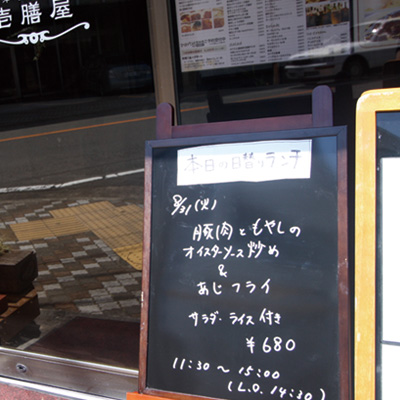 壱膳屋
本日の日替りランチ
8/31(火)
豚肉ともやしの
オイスターソース炒め
&
あじフライ
サラダ・ライス付き
¥680
11:30～15:00
(L.O. 14:30)